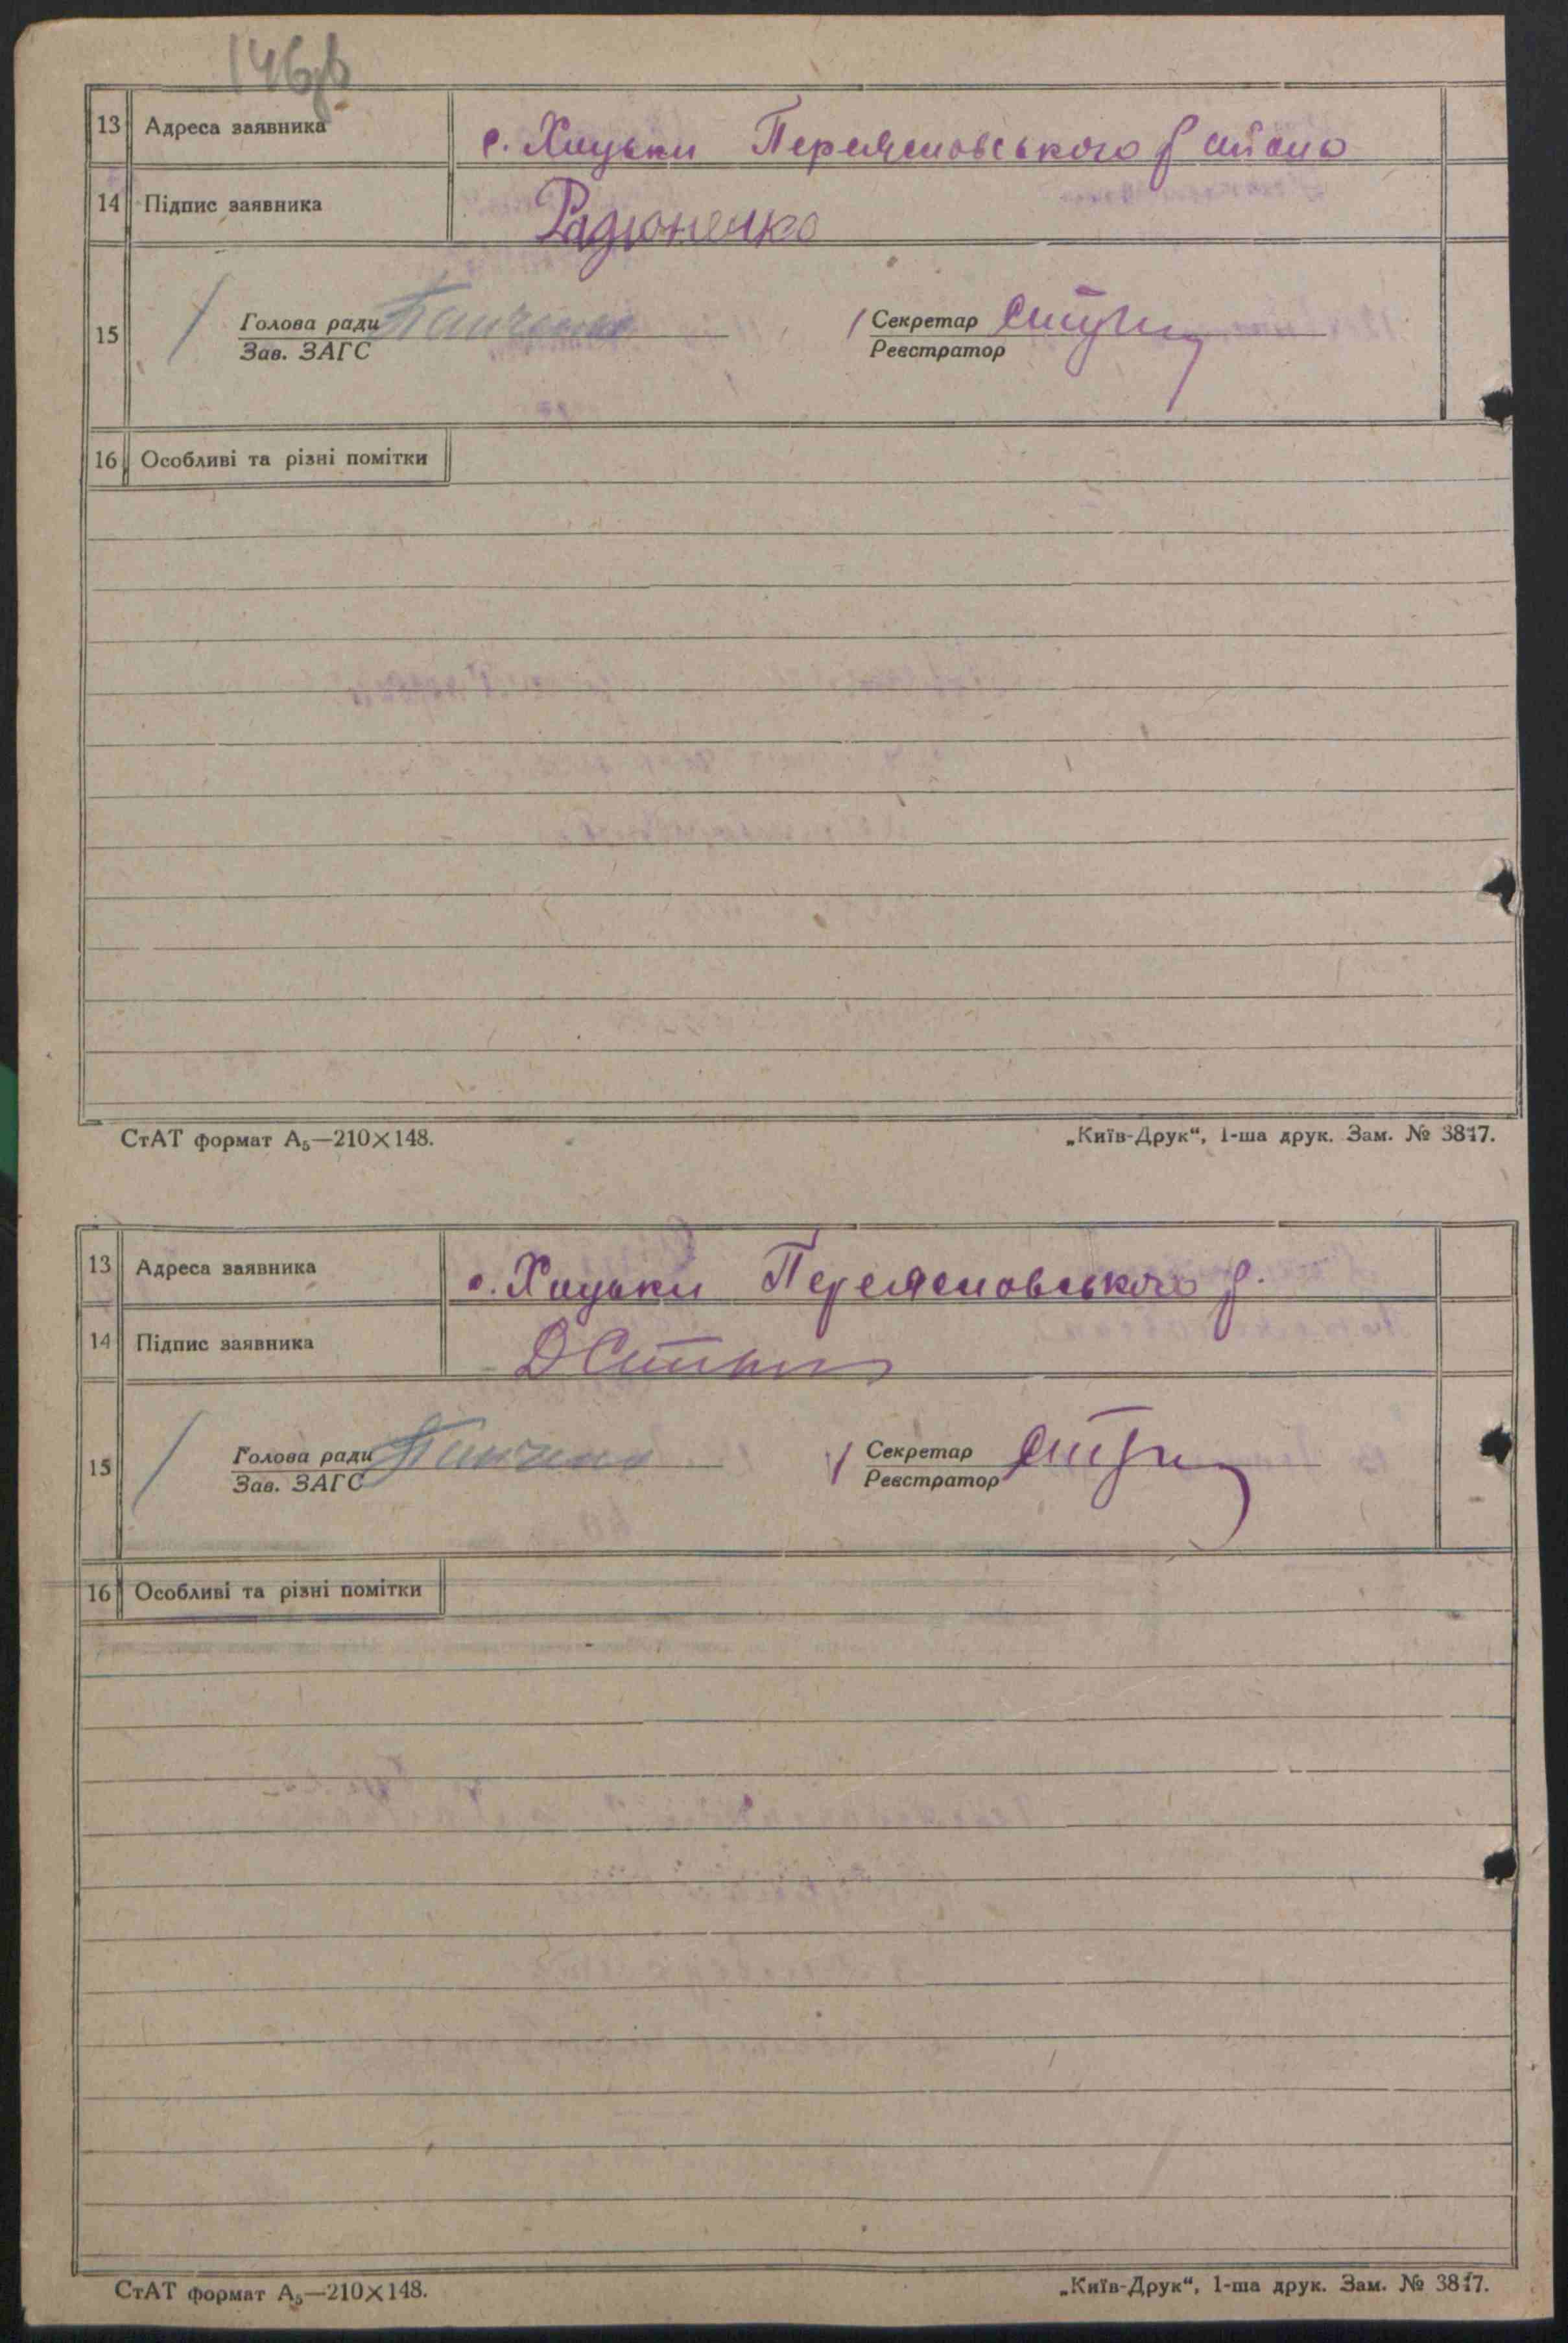 146зв
13 Адреса заявника с. Хоцьки Переяславського району
14 Підпис заявника Радюненко
15 Голова ради Панченко Секретар
Зав. ЗАГС Реєстратор
16 Особливі та різні помітки
СтАТ формат А₅—210×148. „Київ-Друк“, 1-ша друк. Зам. № 3817.
13 Адреса заявника с. Хоцьки Переяславського р.
14 Підпис заявника
15 Голова ради Панченко Секретар
Зав. ЗАГС Реєстратор
16 Особливі та різні помітки
СтАТ формат А₅—210×148. „Київ-Друк“, 1-ша друк. Зам. № 3817.